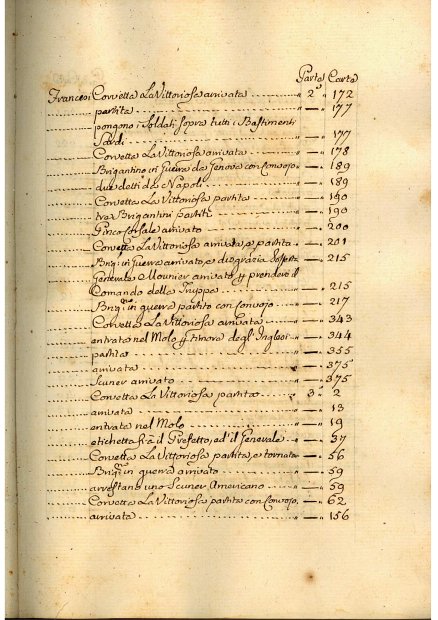 Parte Carta
Francesi Corvetta La Vittoriosa arrivata 2ª 172
partita " 177
pongono i Soldati sopra tutti i Bastimenti
Sardi " 177
Corvetta La Vittoriosa arrivata " 178
Brigantino in Guerra da Genova con Convojo " 189
due detti da Napoli " 189
Corvetta La Vittoriosa partita " 190
tre Brigantini partiti " 190
Pinco corsale arrivato " 200
Corvetta La Vittoriosa arrivata e partita " 201
Brigⁿ in Guerra arrivato, e disgrazia " 215
Generale Mounier arrivato p prendere il
Comando della Truppa " 215
Brigⁿ in guerra partito con convojo " 217
Corvetta La Vittoriosa arrivata " 343
entrata nel Molo p timore degl'Inglesi " 344
partita " 355
arrivata " 375
Scuner arrivato " 375
Corvetta La Vittoriosa partita 3ª 2
arrivata " 13
entrata nel Molo " 19
etichetta frà il Prefetto, ed'il Generale " 37
Corvetta La Vittoriosa partita, e tornata " 56
Brigⁿ in guerra arrivato " 59
arrestano uno Scuner Americano " 59
Corvetta La Vittoriosa partita con Convojo " 62
arrivata " 156